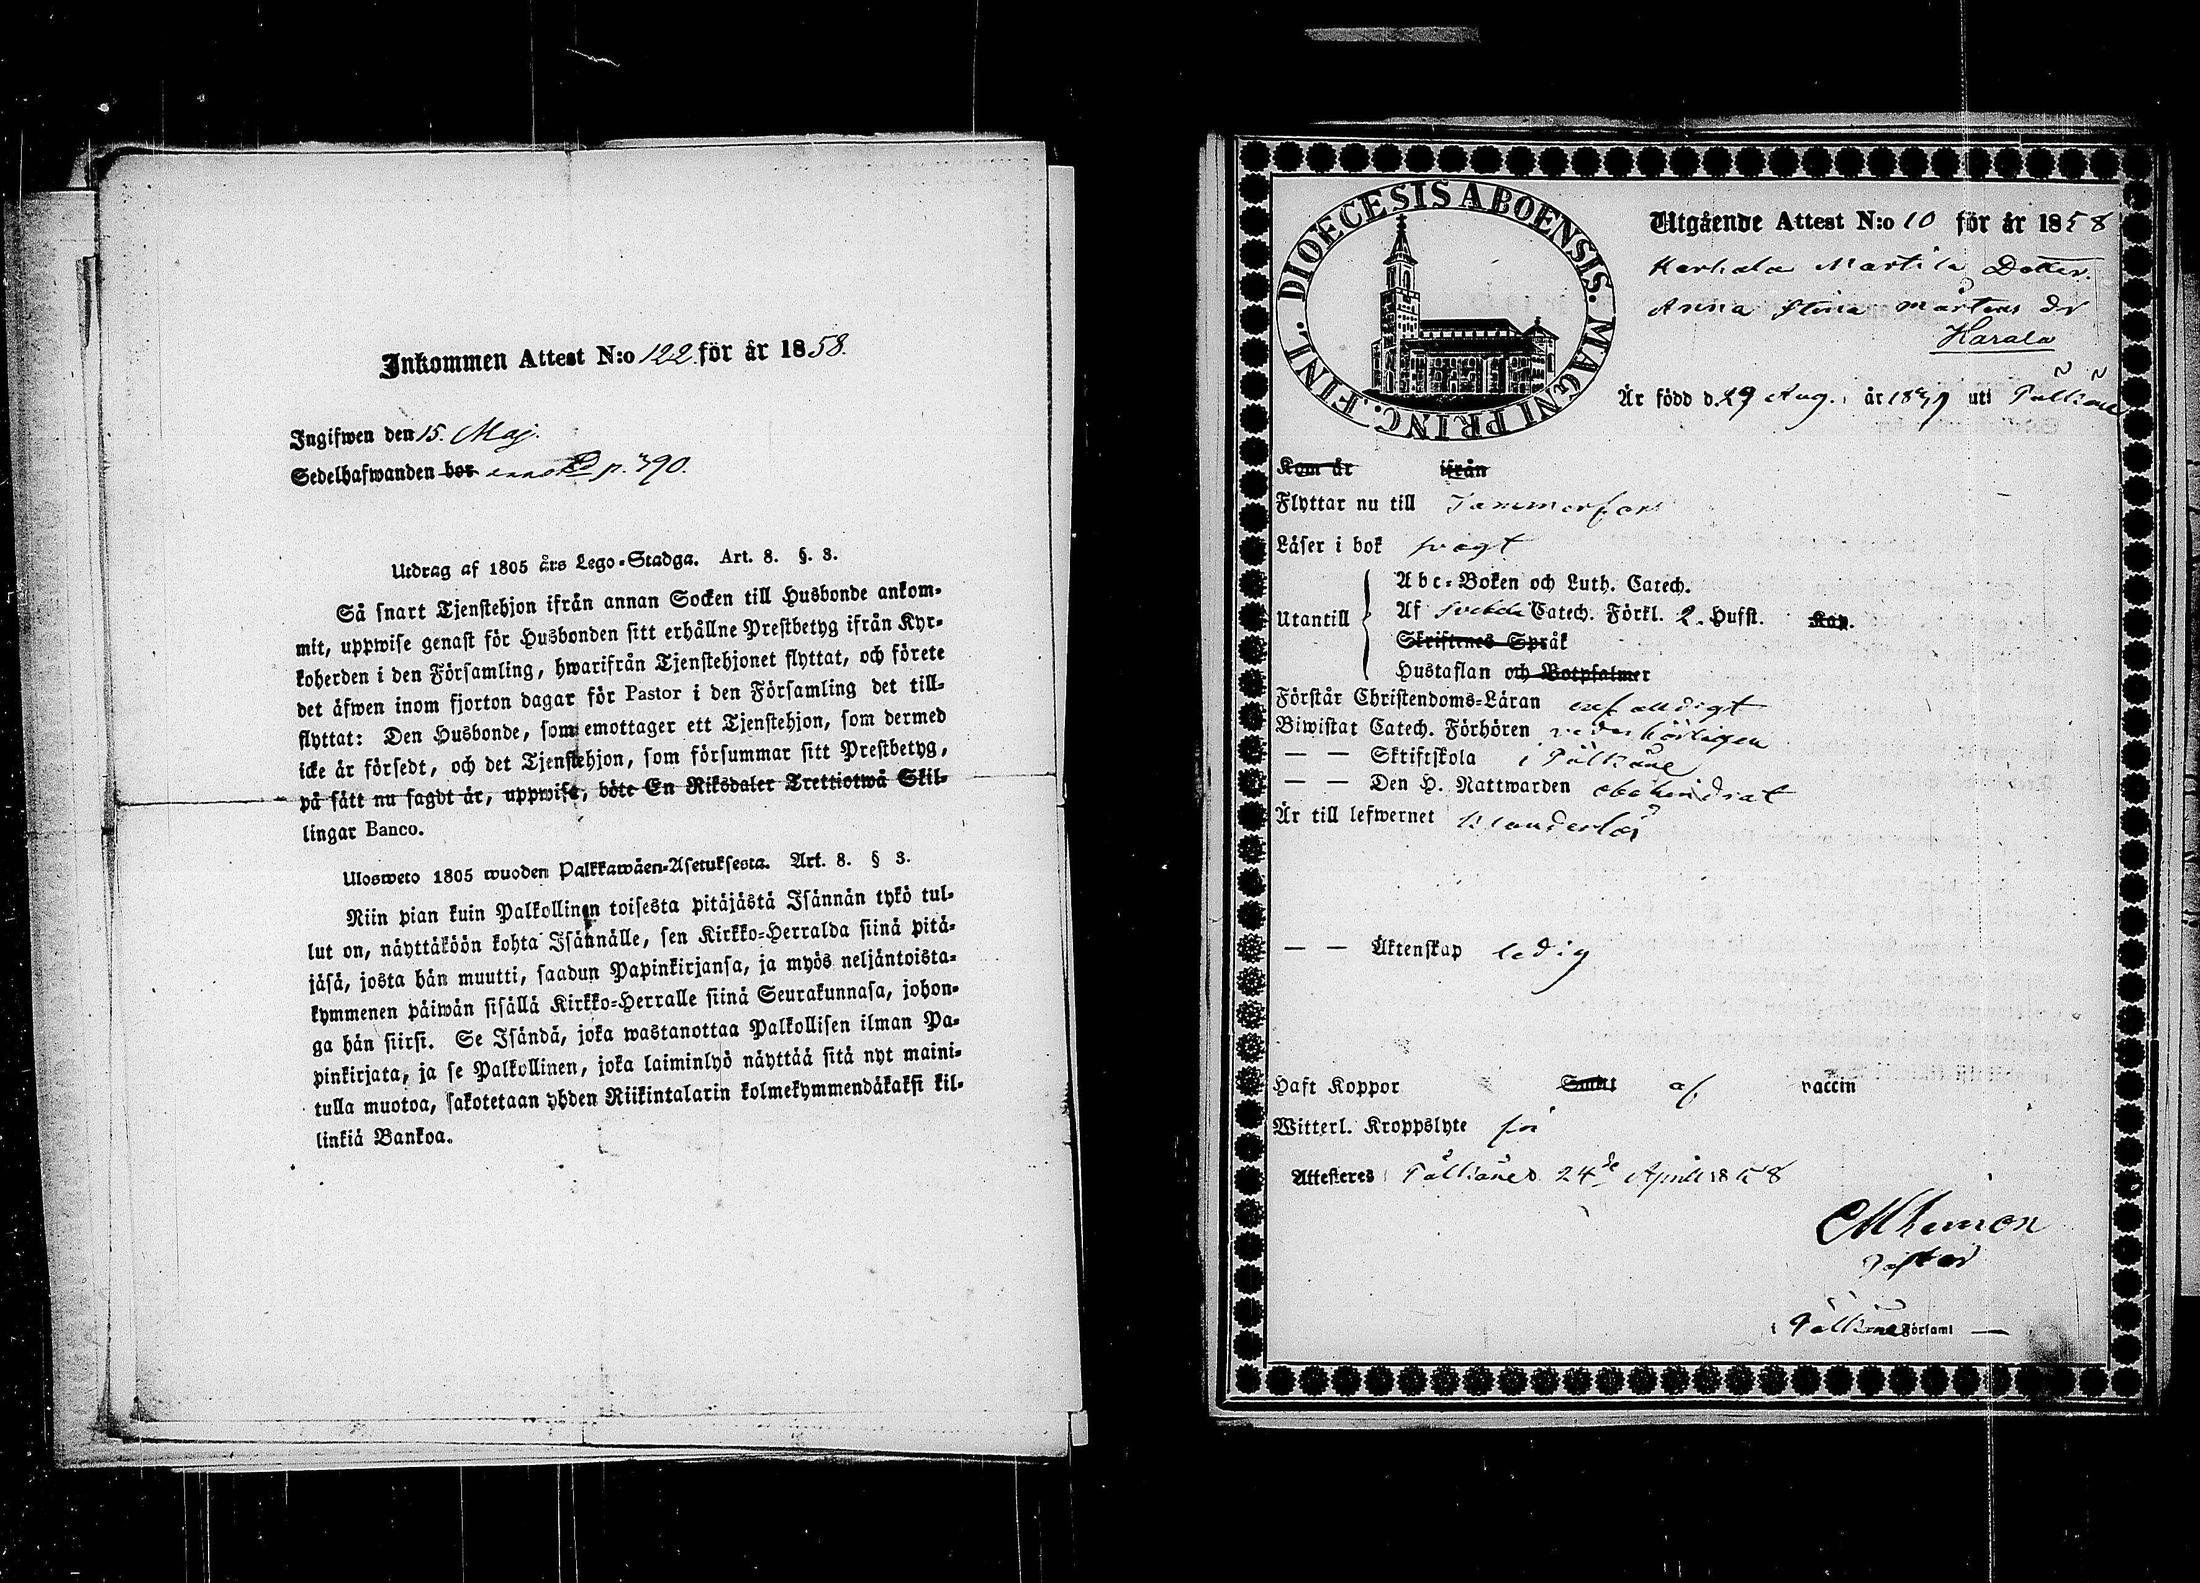 Inkommen Attest N:o 122. för år 1858.
Ingifwen den 15. Maj.
Sedelhafwanden bor annot p. 390.
Utdrag af 1805 års Lego-Stadga. Art. 8. §. 3.
Så snart Tjenstehjon ifrån annan Socken till Husbonde ankom-
mit, uppwise genast för Husbonden sitt erhållne Prestbetyg ifrån Kyr-
koherden i den Församling, hwarifrån Tjenstehjonet flyttat, och förete
det äfwen inom fjorton dagar för Pastor i den Församling det till-
flyttat: Den Husbonde, som emottager ett Tjenstehjon, som dermed
icke är försedt, och det Tjenstehjon, som försummar sitt Prestbetyg,
på sätt nu sagdt är, uppwisa, böte En Riksdaler Trettiotwå Skil-
lingar Banco.
Ulosweto 1805 wuoden Palkkawäen-Asetuksesta. Art. 8. § 3.
Niin pian kuin Palkollinen toisesta pitäjästä Isännän tykö tul-
lut on, näyttäköön kohta Isännälle, sen Kirkko-Herralda siinä pitä-
jäsä, josta hän muutti, saadun Papinkirjansa, ja myös neljäntoista-
kymmenen päiwän sisällä Kirkko-Herralle siinä Seurakunnasa, johon-
ga hän siirsi. Se Isändä, joka wastanottaa Palkollisen ilman Pa-
pinkirjata, ja se Palkollinen, joka laiminlyö näyttää sitä nyt maini-
tulla muotoa, sakotetaan yhden Riikintalarin kolmekymmendäkaksi kil-
linkiä Bankoa.
FINL. DIOECESIS ABOENSIS. MAGNI PRINC.
Utgående Attest N:o 10 för år 1858
Martila Dotter.
Anna Stina Mårtens dr
Harala
Är född d. 29 Aug. år 1839 uti Pälkäne
Kom år ifrån
Flyttar nu till Tammerfors
Läser i bok svagt
Utantill
Abc-Boken och Luth. Catech.
Af Svebelii Catech. Förkl. 2. Hufst. Kap.
Skriftenes Språk
Hustaflan och Botpsalmer
Förstår Christendoms-Läran enfaldigt
Biwistat Catech. Förhören vederbörligen
— — Skriftskola i Pälkäne
— — Den H. Nattwarden obehindrat
Är till lefwernet klanderlös
— — Äktenskap ledig
Haft Koppor Smitt af vaccin
Witterl. Kroppslyte fri
Attesteras Pälkäne d. 24de April 1858
Pastor
i Pälkäne Församl —